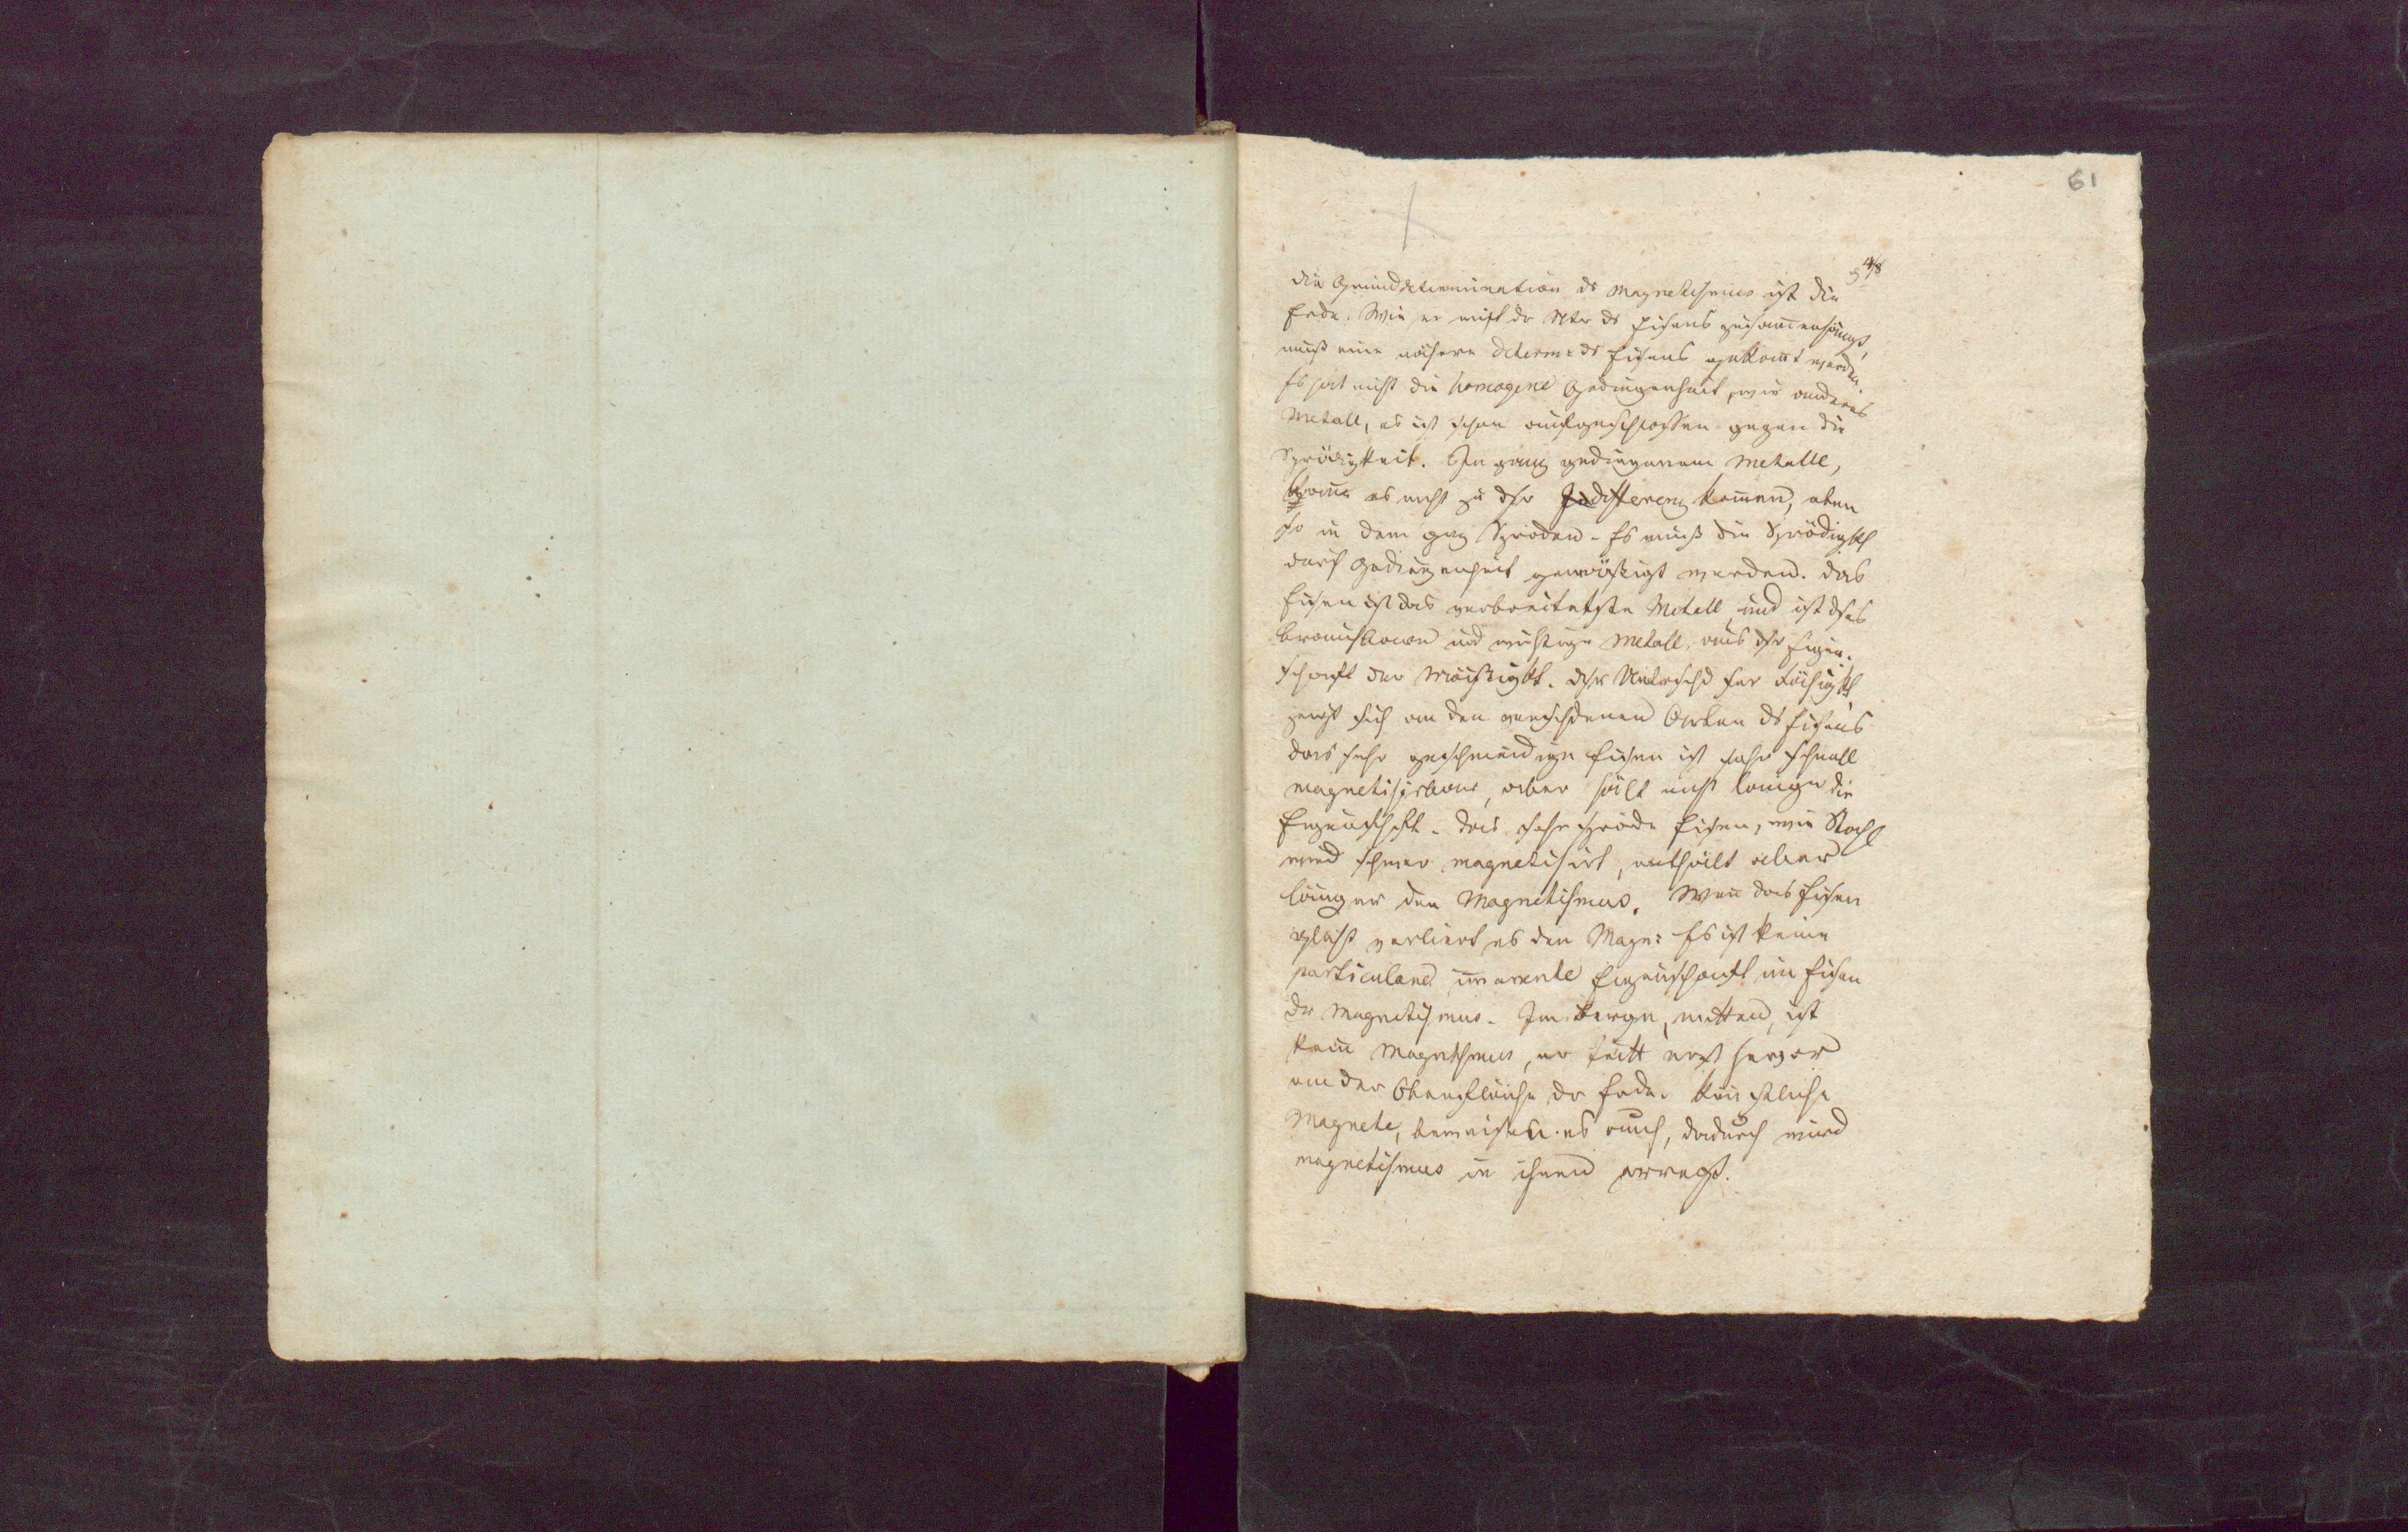 61
5 4/8
die Grunddetermination ds Magnetismus ist die
Erde. Wie er mit dr Ntr ds Eisens zusam̄enhängt,
muß eine nähere Determ: ds Eisens gekan̄t werden.
Es hat nicht die homogene Gediegenheit, wie anderes
Metall, es ist schon aufgeschlossen gegen die
Sprödigkeit. Im ganz gediegenem Metalle,
kan̄ es nicht zu dsr Indifferenz kom̄en, eben
so in dem gnz Spröden. Es muß die Sprödigkt
durch Gediegenheit gemäßigt werden. Das
Eisen ist das verbreiteteste Metall und ist dses
brauchbare und wichtige Metall, aus dsr Eigen-
schaft der Mäßigkt. Dsr Untrschd der Fähigkt
zeigt sich an den verschdenen Arten ds Eisens
das sehr geschmeidige Eisen ist sehr schnell
magnetisirbar, aber hält nicht lange die
Eigenschft. Das sehr spröde Eisen, wie Stahl
wird schwer magnetisirt, enthält aber
länger den Magnetismus. Wen̄ das Eisen
glüht verliert es den Magn: Es ist keine
particulare im̄anente Eigenschaft im Eisen
dr Magnetismus. Im Berge, mitten, ist
kein Magnetismus, er tritt erst hervor
an der Oberfläche dr Erde. Künstliche
Magnete, beweisen es auch, dadurch wird
Magnetismus in ihnen erregt.